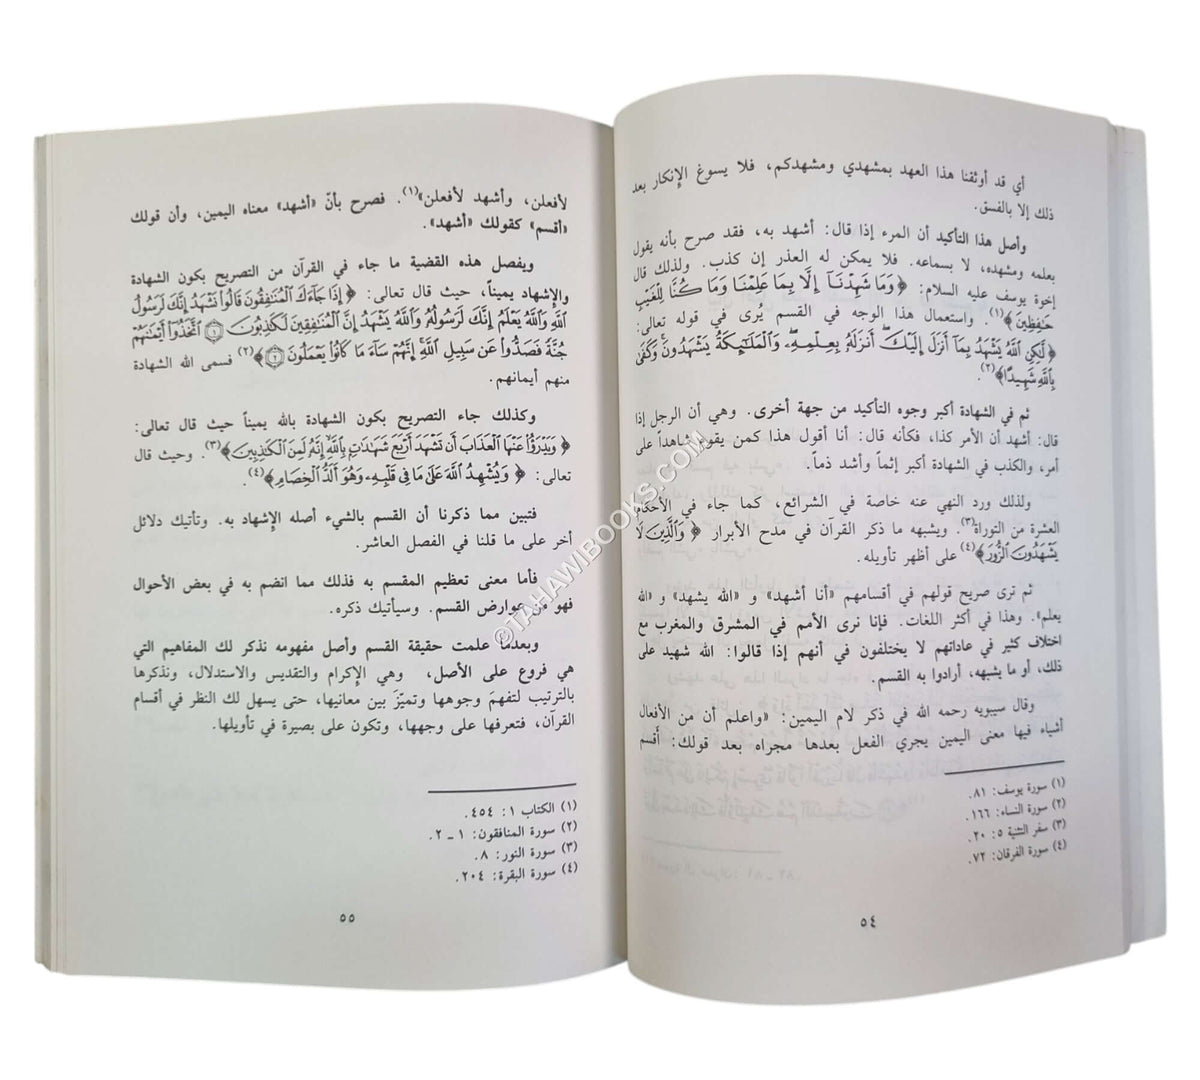 أي قد أوثقنا هذا العهد بمشهدي ومشهدكم، فلا يسوغ الإنكار بعد
ذلك إلا بالفسق.
وأصل هذا التأكيد أن المرء إذا قال: أشهد به، فقد صرح بأنه يقول
بعلمه ومشهده، لا بسماعه. فلا يمكن له العذر إن كذب. ولذلك قال
إخوة يوسف عليه السلام: ﴿وَمَا شَهِدْنَا إِلَّا بِمَا عَلِمْنَا وَمَا كُنَّا لِلْغَيْبِ
حَافِظِينَ﴾(١). واستعمال هذا الوجه في القسم يُرى في قوله تعالى:
﴿لَّكِنِ اللَّهُ يَشْهَدُ بِمَا أَنزَلَ إِلَيْكَ أَنزَلَهُ بِعِلْمِهِ وَالْمَلَائِكَةُ يَشْهَدُونَ وَكَفَى
بِاللَّهِ شَهِيدًا﴾(٢).
ثم في الشهادة أكبر وجوه التأكيد من جهة أخرى. وهي أن الرجل إذا
قال: أشهد أن الأمر كذا، فكأنه قال: أنا أقول هذا كمن يقوم شاهداً على
أمر، والكذب في الشهادة أكبر إثماً وأشد ذماً.
ولذلك ورد النهي عنه خاصة في الشرائع، كما جاء في الأحكام
العشرة من التوراة(٣). ويشبهه ما ذكر القرآن في مدح الأبرار ﴿وَالَّذِينَ لَا
يَشْهَدُونَ الزُّورَ﴾(٤) على أظهر تأويله.
ثم ترى صريح قولهم في أقسامهم «أنا أشهد» و «الله يشهد» و «الله
يعلم». وهذا في أكثر اللغات. فإنا نرى الأمم في المشرق والمغرب مع
اختلاف كثير في عاداتهم لا يختلفون في أنهم إذا قالوا: الله شهيد على
ذلك، أو ما يشبهه، أرادوا به القسم.
وقال سيبويه رحمه الله في ذكر لام اليمين: «واعلم أن من الأفعال
أشياء فيها معنى اليمين يجري الفعل بعدها مجراه بعد قولك: أقسم
(١) سورة يوسف: ٨١.
(٢) سورة النساء: ١٦٦.
(٣) سفر التثنية ٥: ٢٠.
(٤) سورة الفرقان: ٧٢.
٥٤
لأفعلن، وأشهد لأفعلن»(١). فصرح بأنّ «أشهد» معناه اليمين، وأن قولك
«أقسم» كقولك «أشهد».
ويفصل هذه القضية ما جاء في القرآن من التصريح بكون الشهادة
والإشهاد يميناً، حيث قال تعالى: ﴿إِذَا جَاءَكَ الْمُنَافِقُونَ قَالُوا نَشْهَدُ إِنَّكَ لَرَسُولُ
اللَّهِ وَاللَّهُ يَعْلَمُ إِنَّكَ لَرَسُولُهُ وَاللَّهُ يَشْهَدُ إِنَّ الْمُنَافِقِينَ لَكَاذِبُونَ ١ اتَّخَذُوا أَيْمَانَهُمْ
جُنَّةً فَصَدُّوا عَن سَبِيلِ اللَّهِ إِنَّهُمْ سَاءَ مَا كَانُوا يَعْمَلُونَ ٢﴾(٢) فسمى الله الشهادة
منهم أيمانهم.
وكذلك جاء التصريح بكون الشهادة بالله يميناً حيث قال تعالى:
﴿وَيَدْرَؤُا عَنْهَا الْعَذَابَ أَن تَشْهَدَ أَرْبَعَ شَهَادَاتٍ بِاللَّهِ إِنَّهُ لَمِنَ الْكَاذِبِينَ﴾(٣). وحيث قال
تعالى: ﴿وَيُشْهِدُ اللَّهَ عَلَى مَا فِي قَلْبِهِ وَهُوَ أَلَدُّ الْخِصَامِ﴾(٤).
فتبين مما ذكرنا أن القسم بالشيء أصله الإشهاد به. وتأتيك دلائل
أخر على ما قلنا في الفصل العاشر.
فأما معنى تعظيم المقسم به فذلك مما انضم به في بعض الأحوال
فهو من عوارض القسم. وسيأتيك ذكره.
وبعدما علمت حقيقة القسم وأصل مفهومه نذكر لك المفاهيم التي
هي فروع على الأصل، وهي الإكرام والتقديس والاستدلال، ونذكرها
بالترتيب لتفهمَ وجوهها وتميّزَ بين معانيها، حتى يسهل لك النظر في أقسام
القرآن، فتعرفها على وجهها، وتكون على بصيرة في تأويلها.
(١) الكتاب ١: ٤٥٤.
(٢) سورة المنافقون: ١ ـ ٢.
(٣) سورة النور: ٨.
(٤) سورة البقرة: ٢٠٤.
٥٥
©TAHAWIBOOKS.COM